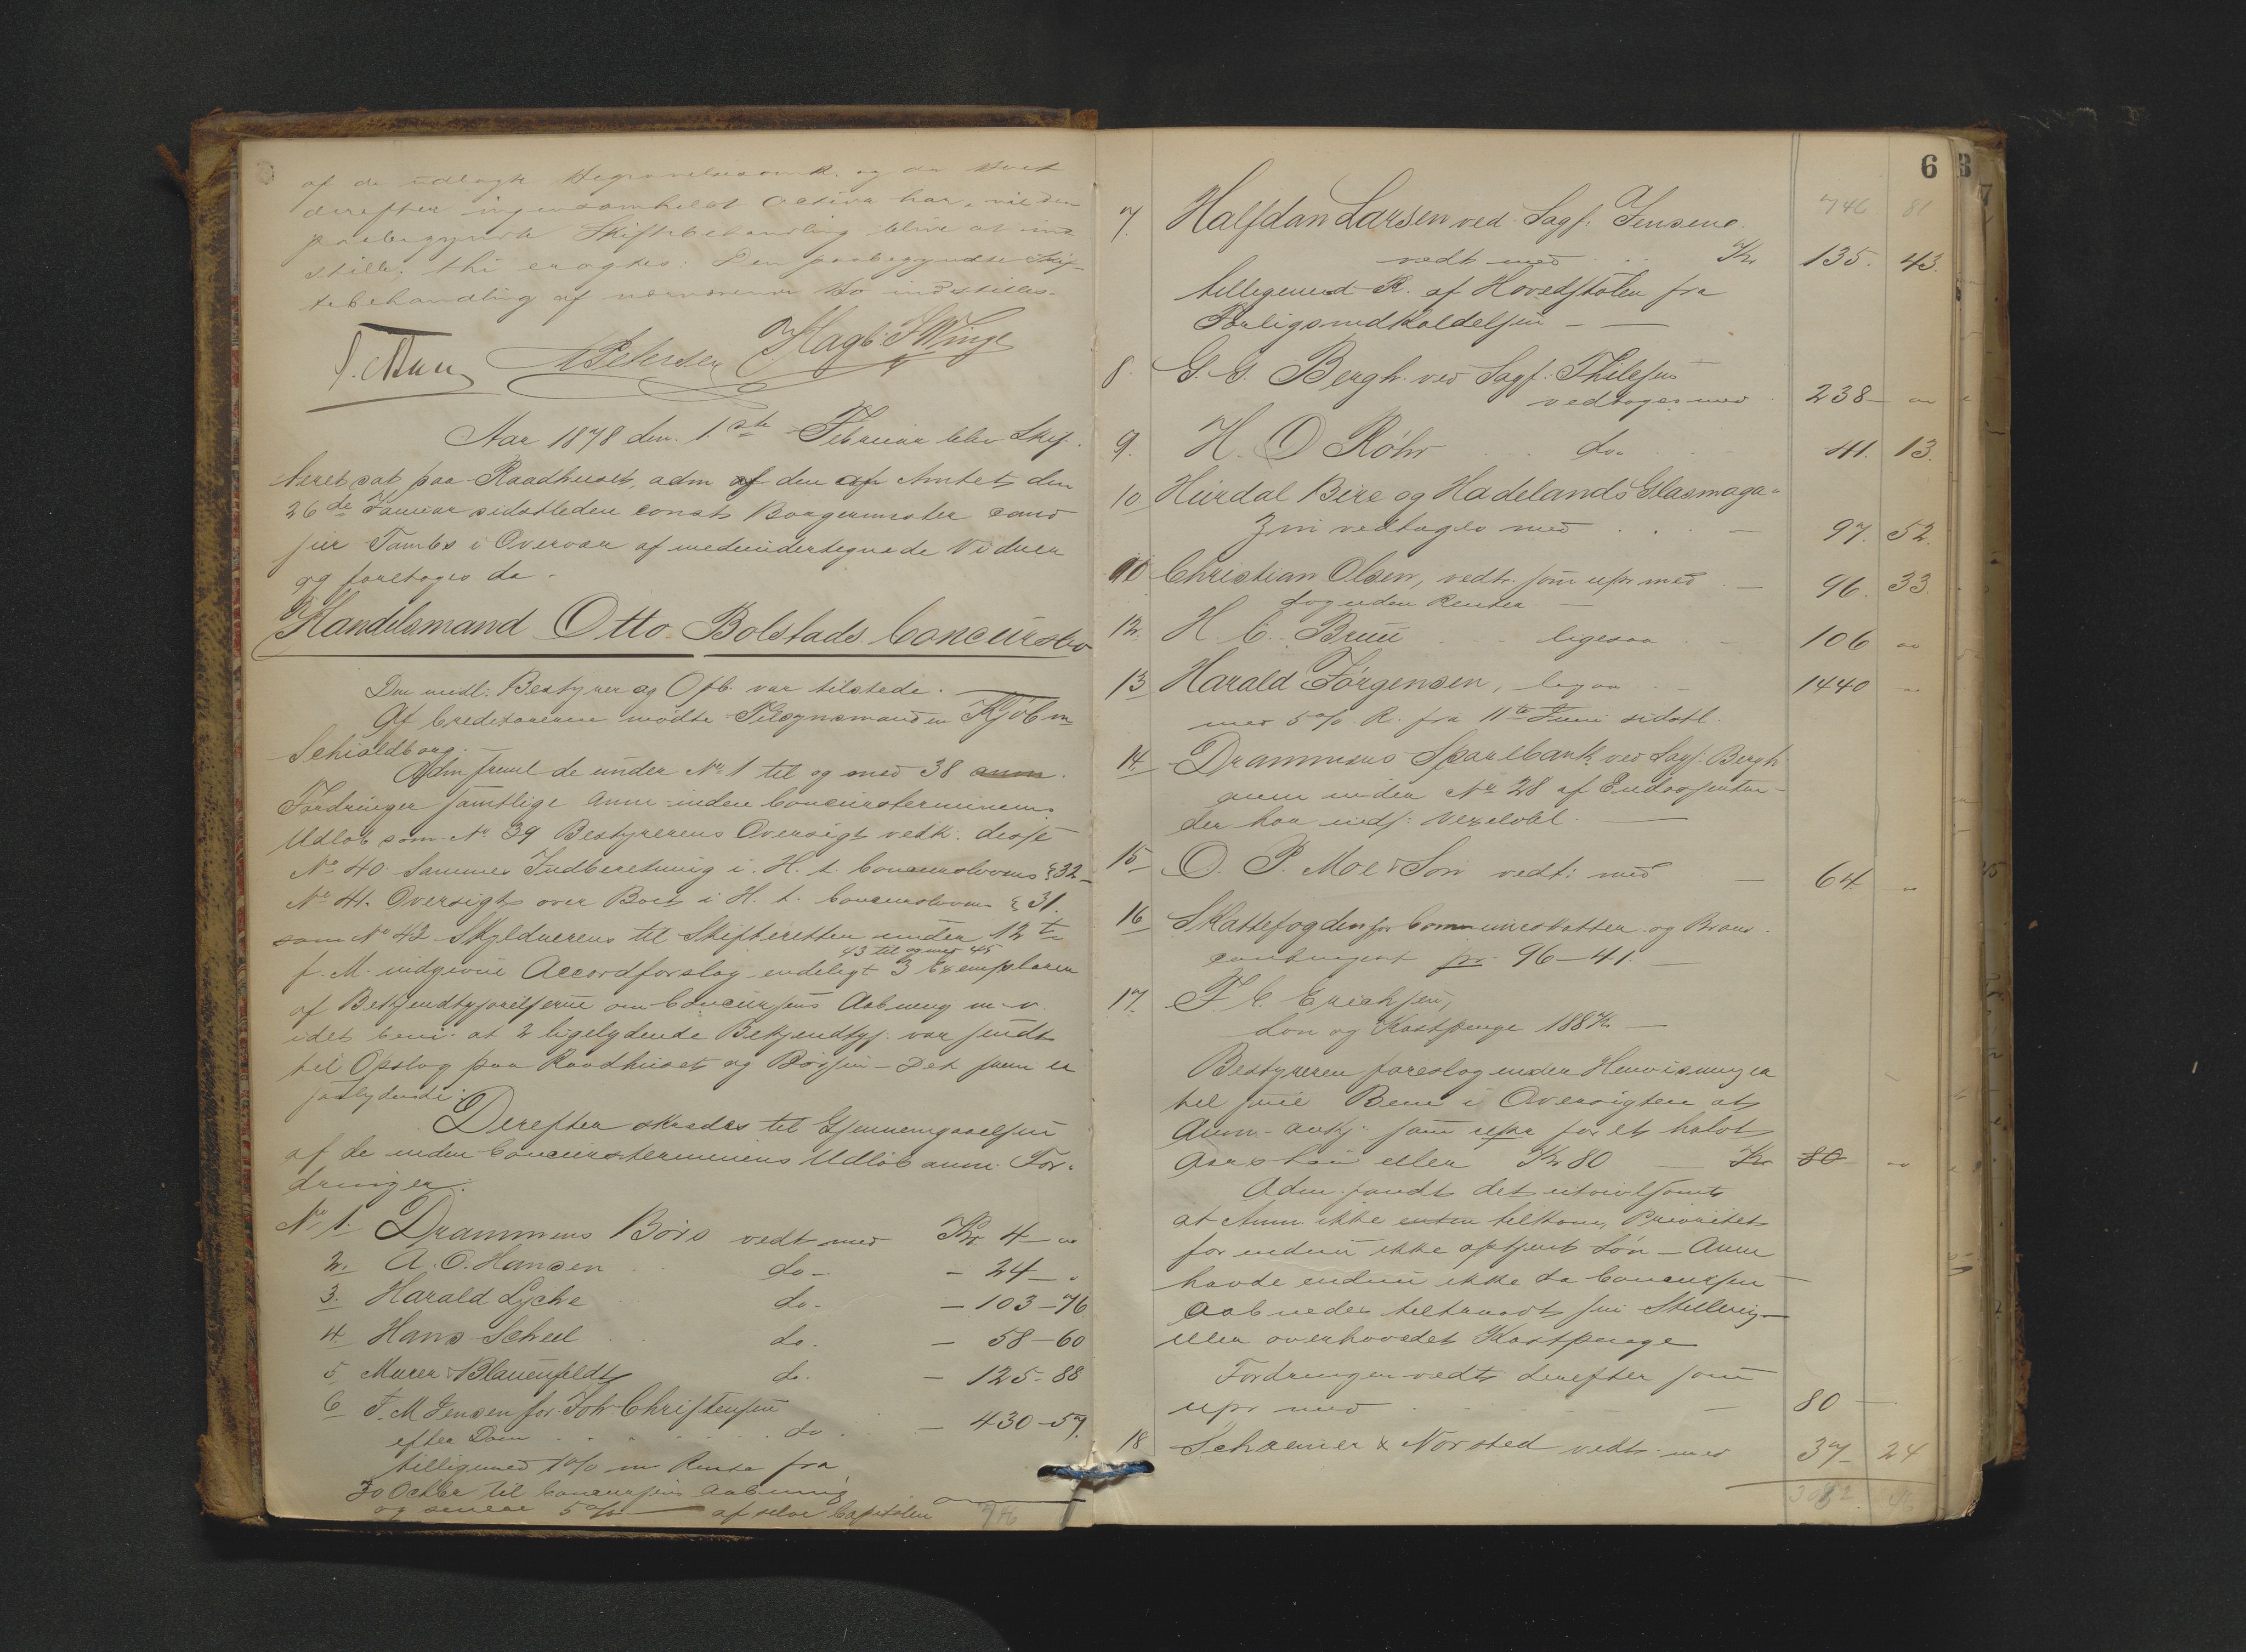 af de udlagte Begravelsesomk. og da Boet
derefter ingensomhelst Activa har, vil den
paabegyndte Skiftebehandling blive at ind
stille, thi eragtes: Den paabegyndte Skif-
tebehandling af nærværende Bo indstilles.
A Petersen Hagb. F Winge
Aar 1878 den 1ste Februar blev Skif-
teret sat paa Raadhuset, adm af den af Amtet den
26de Januar sidstleden const Borgermester cand
jur Tambs i Overvær af medundertegnede Vidner
og foretoges da
Handelsmand Otto Bolstads Concursbo
Den midl: Bestyrer og Opb. var tilstede.
Af Creditorerne mødte Tilsynsmanden Kjøbm
Schioldborg.
Adm freml de under No 1 til og med 38 anm.
Fordringer samtlige anm inden Concursterminens
Udløb som No 39 Bestyrerens Oversigt vedk. disse
No 40 Sammes Indberetning i H. t. Concurslovens § 32
No 41. Oversigt over Boet i H. t. Concurslovens § 31.
som No 42 Skyldnerens til Skifteretten under 12te
43 til og med 45
f. M. indgivne Accordforslag endeligt 3 Exemplarer
af Bekjendtgjørelserne om Concursens Aabning m. v.
idet bem. at 2 ligelydende Bekjendtgj. var sendt
til Opslag paa Raadhuset og Børsen – Det frem er
saalydende:
Derefter skredes til Gjennemgaaelsen
af de inden Concursterminens Udløb anm. For-
dringer.
No 1. Drammens Børs vedt med Kr 4 – "
2. A. O. Hansen do – 24 – "
3. Harald Lyche do – 103 – 76
4 Hans Scheel do – 58 – 60
5 Murer Blauenfeldt do – 125 – 88
6 F. M Jensen for Joh Christensen
efter Dom do – 430 – 57.
tilligemed % Rente fra
30 Octbr til Concursens Aabning
og senere 5 % af selve Capitalen
746
6
746 81
7. Halfdan Larsen ved Sagf. Jensens
vedt med Kr 135. 43.
tilligemed R. af Hovedstolen fra
Forligsindkaldelsen –
8. G. G. Bergh ved Sagf. Thilesen
vedtoges med 238 – "
9. H. O Röhr do 41. 13.
10 Hurdal Bire og Hadelands Glasmaga-
zin vedtoges med – 97. 52.
11 Christian Olsen, vedt. som upr med – 96. 33.
dog uden Renter –
12. H. C. Bruu ligesaa – 106 "
13 Harald Jørgensen, ligsaa – 1440 "
med 5 % R. fra 11te Juni sidstl.
14 Drammens Sparebank ved Sagf. Bergh
anm under No 28 af Endossenten
der har indf. Vexelobl.
15 O. P. Moe & Søn vedt: med – 64. "
16 Skattefogden for Communeskatter og Brand
contingent pr. 96 – 41. –
17. F. C. Erichsen,
Løn og Kostpenge 188 Kr –
Bestyreren foreslog under Henvisninger
til sine Bem i Oversigten at
Anm. anky. som upr for et halvt
Aars Løn eller Kr 80 – Kr 80 – "
Adm. fandt det utvivlsomt
at Anm ikke enten tilkom Prioritet
for endnu ikke optjent Løn – Anm
havde endnu ikke da Concursen
aabnedes tiltraadt sin Stilling –
eller overhovedet Kostpenge
Fordringen vedt derefter som
upr med – 80 –
18 Schreiner & Norsted vedt. med 37 – 24